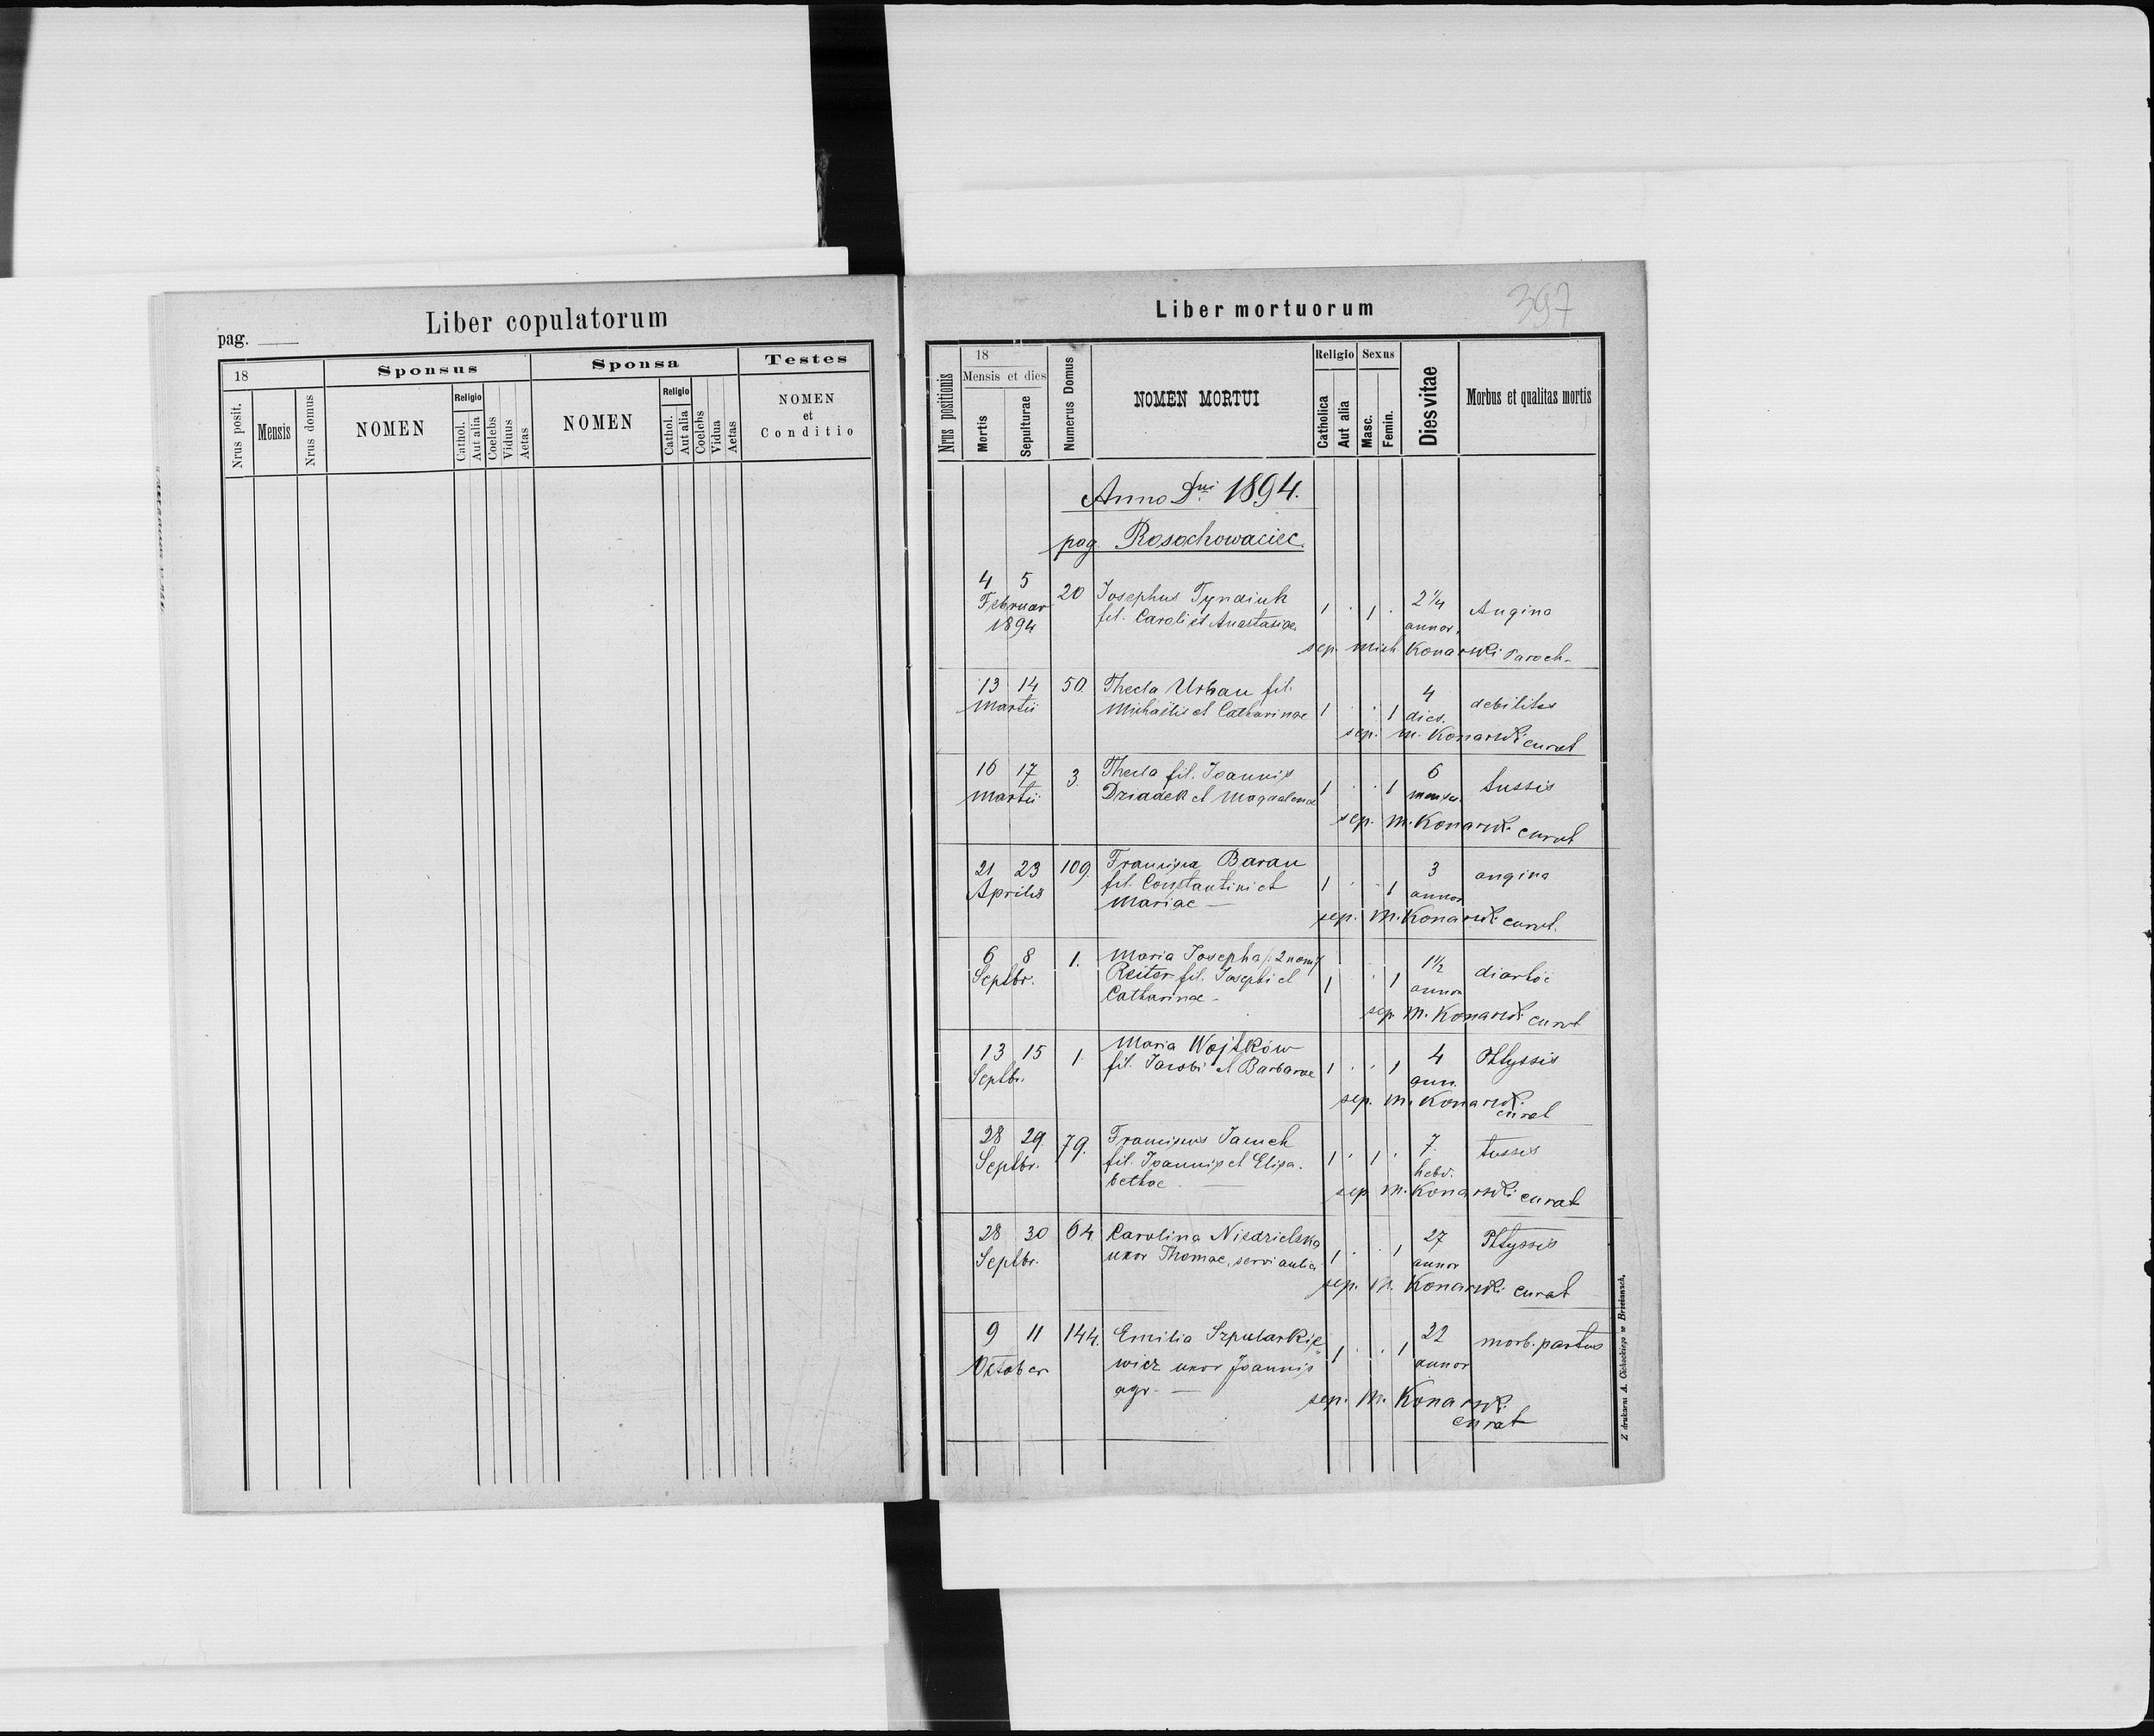 Liber copulatorum
pag.
18
Sponsus
Sponsa
Testes
Nrus posit.
Mensis
Nrus domus
NOMEN
Religio
Cathol.
Aut alia
Coelebs
Viduus
Aetas
NOMEN
Religio
Cathol.
Aut alia
Coelebs
Vidua
Aetas
NOMEN
et
Conditio
Liber mortuorum
397
Nrus positionis
18
Mensis et dies
Mortis
Sepulturae
Numerus Domus
NOMEN MORTUI
Religio
Catholica
Aut alia
Sexus
Masc.
Femin.
Dies vitae
Morbus et qualitas mortis
Anno Dni 1894.
pag. Rosochowaciec.
4 5 20 Josephus Tyndiuk 1 . 1 . 2 1/4 Angina
Februar fil. Caroli et Anastasiae annor.
1894
sep. Mich Konarski Paroch-
13 14 50. Thecla Urban fil. 4 debilitas
Martii Michaelis et Catharinae 1 . . 1 dies.
sep. M. Konarski curat
16 17 3. Thecla fil. Joannis 1 . . 1 6 tussis
Martii Dziadek et Magdalenae menses
sep. M. Konarski curat
21 23 109. Francisca Baran 3 angina
Aprilis fil. Constantini et 1 . . 1 annor
Mariae —
sep. M. Konarski curat.
6 8 1. Maria Josepha /: 2 nom/ 1 1/2
Septbr. Reiter fil. Josephi et 1 . 1 annor
Catharinae -
sep. M. Konarski curat
13 15 1. Maria Wojtków 4 Phtyssis
Septbr. fil. Jacobi et Barbarae 1 . . 1 ann.
sep. M. Konarski
curat
28 29. 79. Franciscus 1 . 1 . 7. tussis
Septbr. fil. Joannis et Elisa- hebd.
bethae —
sep M. Konarski curat
28 30 64 Carolina Niedzielska 27 Phtyssis
Septbr. uxor Thomae, servi aulic 1 . . 1 annor
sep. M. Konarski curat
9 11 144. Emilia Szpularkie 1 . . 1 22 morb. partus
Oktober wicz uxor Joannis annor
agr. —
sep. M. Konarski
curat
Z drukarni A. Cichockiego w Brzeżanach.